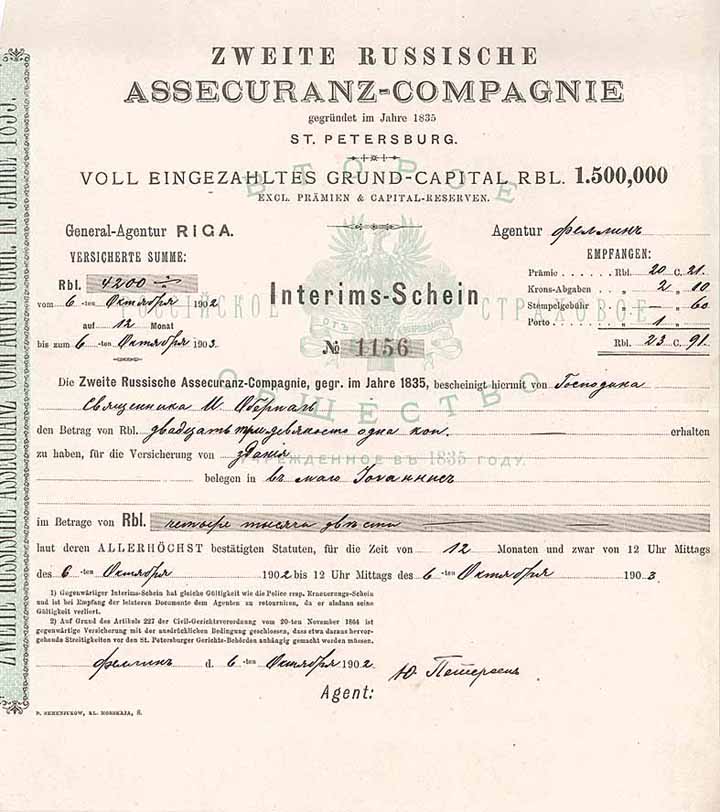 ZWEITE RUSSISCHE
ASSECURANZ-COMPAGNIE
gegründet im Jahre 1835
ST. PETERSBURG.
VOLL EINGEZAHLTES GRUND-CAPITAL RBL. 1.500,000
EXCL. PRÄMIEN & CAPITAL-RESERVEN.
General-Agentur RIGA.
Agentur Феллинъ
VERSICHERTE SUMME:
EMPFANGEN:
Rbl. 4200
Prämie . . . . . . Rbl. 20 C. 21.
vom 6 -ten Октября 1902
Krons-Abgaben . . „ 2 „ 10
auf 12 Monat
Stempelgebühr . . „ — „ 60
bis zum 6 -ten Октября 1903
Porto . . . . . . . „ 1 „
Rbl. 23 C. 91.
Interims-Schein
№ 1156
ВТОРОЕ
РОССІЙСКОЕ СТРАХОВОЕ
ОБЩЕСТВО
УЧРЕЖДЕННОЕ ВЪ 1835 ГОДУ.
Die Zweite Russische Assecuranz-Compagnie, gegr. im Jahre 1835, bescheinigt hiermit von Господина
Священника И.
den Betrag von Rbl. двадцать три девяносто одна коп. erhalten
zu haben, für die Versicherung von зданія
belegen in въ маю Іоаннисъ
im Betrage von Rbl. четыре тысяча двѣсти
laut deren ALLERHÖCHST bestätigten Statuten, für die Zeit von 12 Monaten und zwar von 12 Uhr Mittags
des 6 -ten Октября 1902 bis 12 Uhr Mittags des 6 -ten Октября 1903
1) Gegenwärtiger Interims-Schein hat gleiche Gültigkeit wie die Police resp. Erneuerungs-Schein
und ist bei Empfang der letzteren Documente dem Agenten zu retourniren, da er alsdann seine
Gültigkeit verliert.
2) Auf Grund des Artikels 227 der Civil-Gerichtsverordnung vom 20-ten November 1864 ist
gegenwärtige Versicherung mit der ausdrücklichen Bedingung geschlossen, dass etwa daraus hervor-
gehende Streitigkeiten vor den St. Petersburger Gerichts-Behörden anhängig gemacht werden müssen.
Феллинъ d. 6 -ten Октября 1902
Agent: Ю. Петерсенъ
P. SEMENJKOW, KL. MORSKAJA, 8.
ZWEITE RUSSISCHE ASSECURANZ COMPAGNIE GEGR. IM JAHRE 1835.